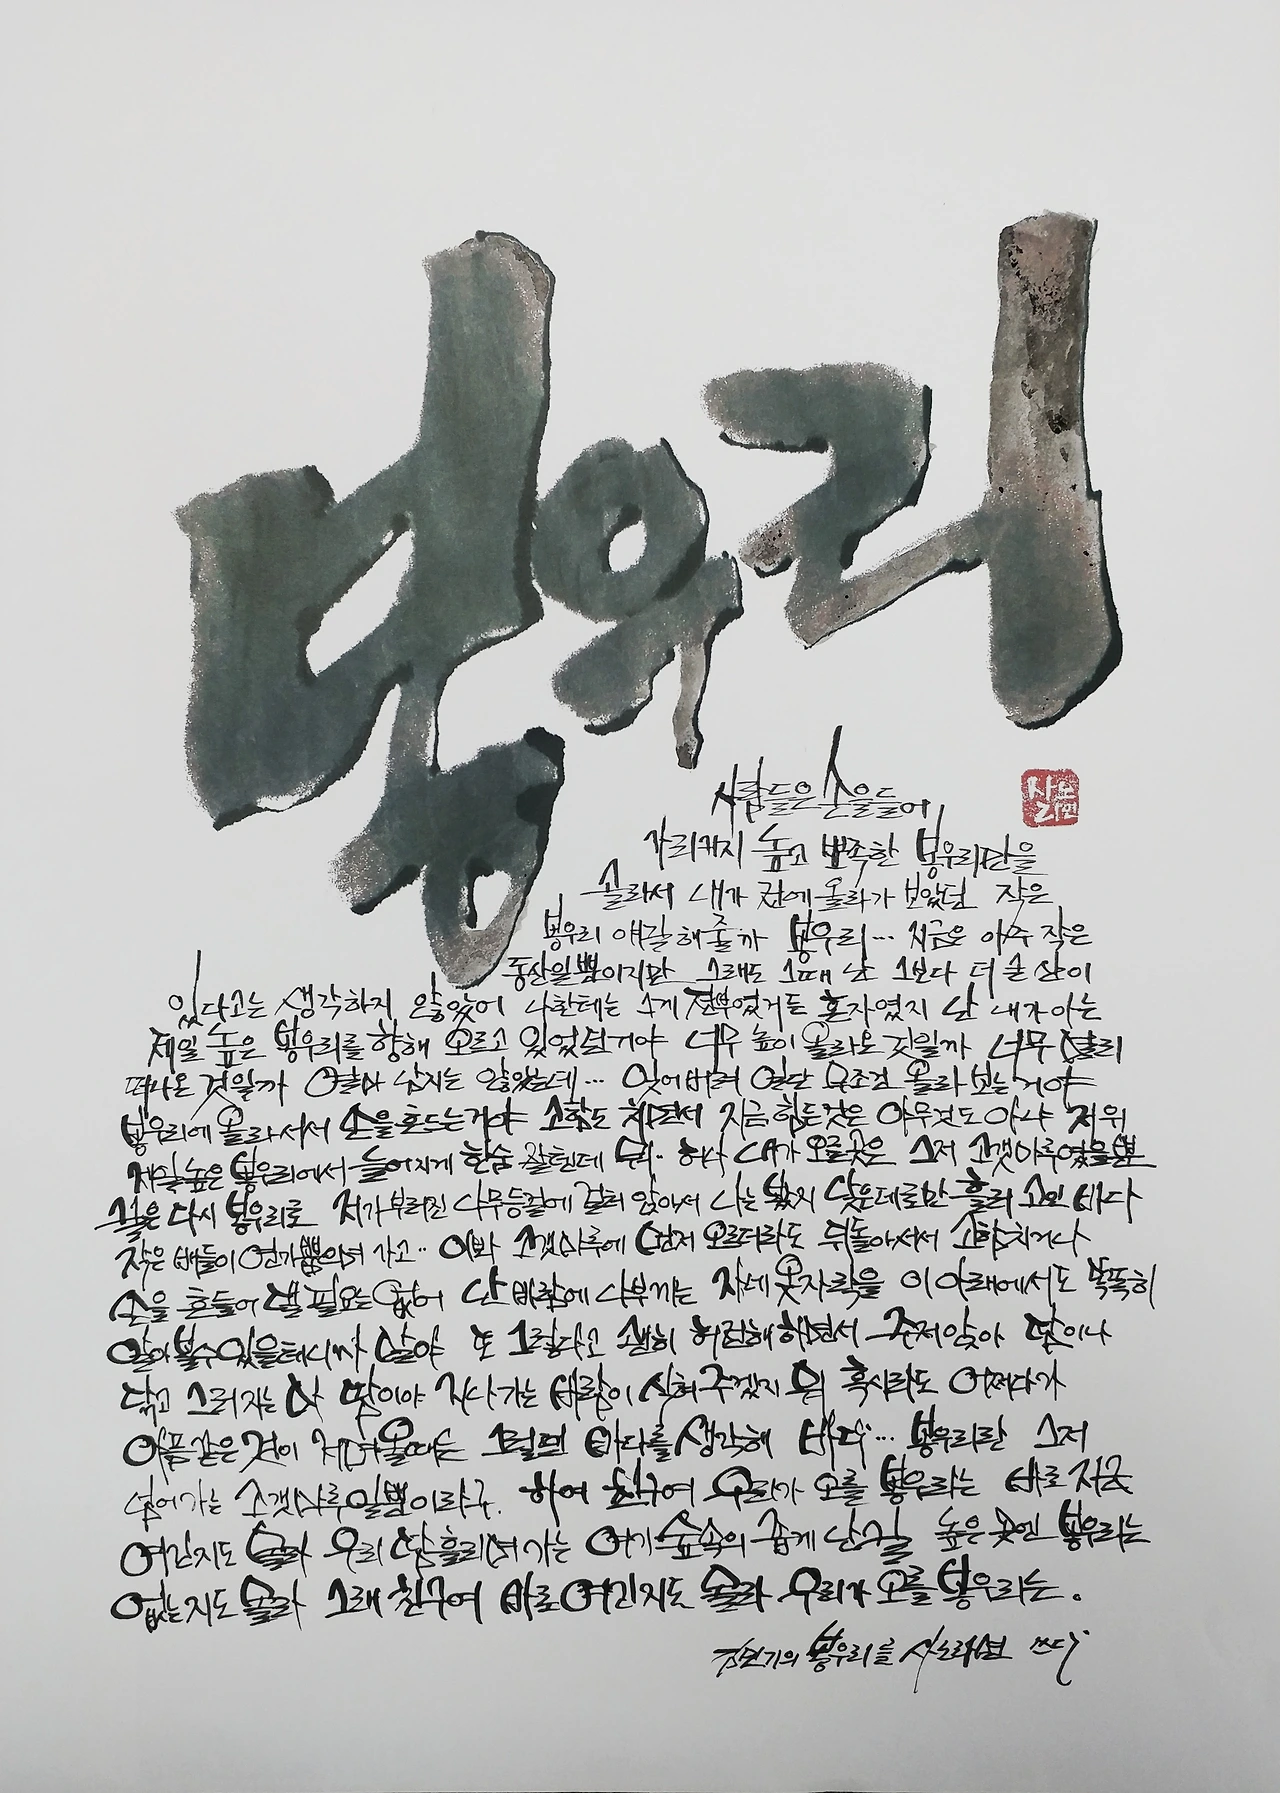 봉우리
사람들은 손을 들어
가리키지 높고 뾰족한 봉우리만을
골라서 내가 전에 올라가 보았던 작은
봉우리 얘길 해줄까 봉우리… 지금은 아주 작은
동산일 뿐이지만 그래도 그때 난 그보다 더 큰 산이
있다고는 생각하지 않았어 나한테는 그게 전부였거든 혼자였지 난 내가 아는
제일 높은 봉우리를 향해 오르고 있었던 거야 너무 높이 올라온 것일까 너무 멀리
떠나온 것일까 얼마 남지는 않았는데… 잊어버려 일단 무조건 올라보는 거야
봉우리에 올라서서 손을 흔드는 거야 고함도 치면서 지금 힘든 것은 아무것도 아냐 저 위
제일 높은 봉우리에서 늘어지게 한숨 잘텐데 뭐.. 허나 내가 오른 곳은 그저 고갯마루였을 뿐
길은 다시 봉우리로 저기 부러진 나무등걸에 걸터 앉아서 나는 봤지 낮은 데로만 흘러 고인 바다
작은 배들이 연기 뿜으며 가고.. 이봐 고갯마루에 먼저 오르더라도 뒤돌아서서 고함치거나
손을 흔들어 댈 필요는 없어 난 바람에 나부끼는 자네 옷자락을 이 아래에서도 똑똑히
알아볼 수 있을테니까 말야 또 그렇다고 괜히 허전해 하면서 주저앉아 땀이나
닦고 그러지는 마 땀이야 지나가는 바람이 식혀주겠지 뭐 혹시라도 어쩌다가
아픔같은 것이 저며올 때는 그럴땐 바다를 생각해 바다… 봉우리란 그저
넘어가는 고갯마루일 뿐이라구. 하여 친구여 우리가 오를 봉우리는 바로 지금
여긴지도 몰라 우리 땀 흘리며 가는 여기 숲속의 좁게 난 길 높은 곳엔 봉우리는
없는지도 몰라 그래 친구여 바로 여긴지도 몰라 우리가 오를 봉우리는.
김민기의 봉우리를 사노라면 쓰다